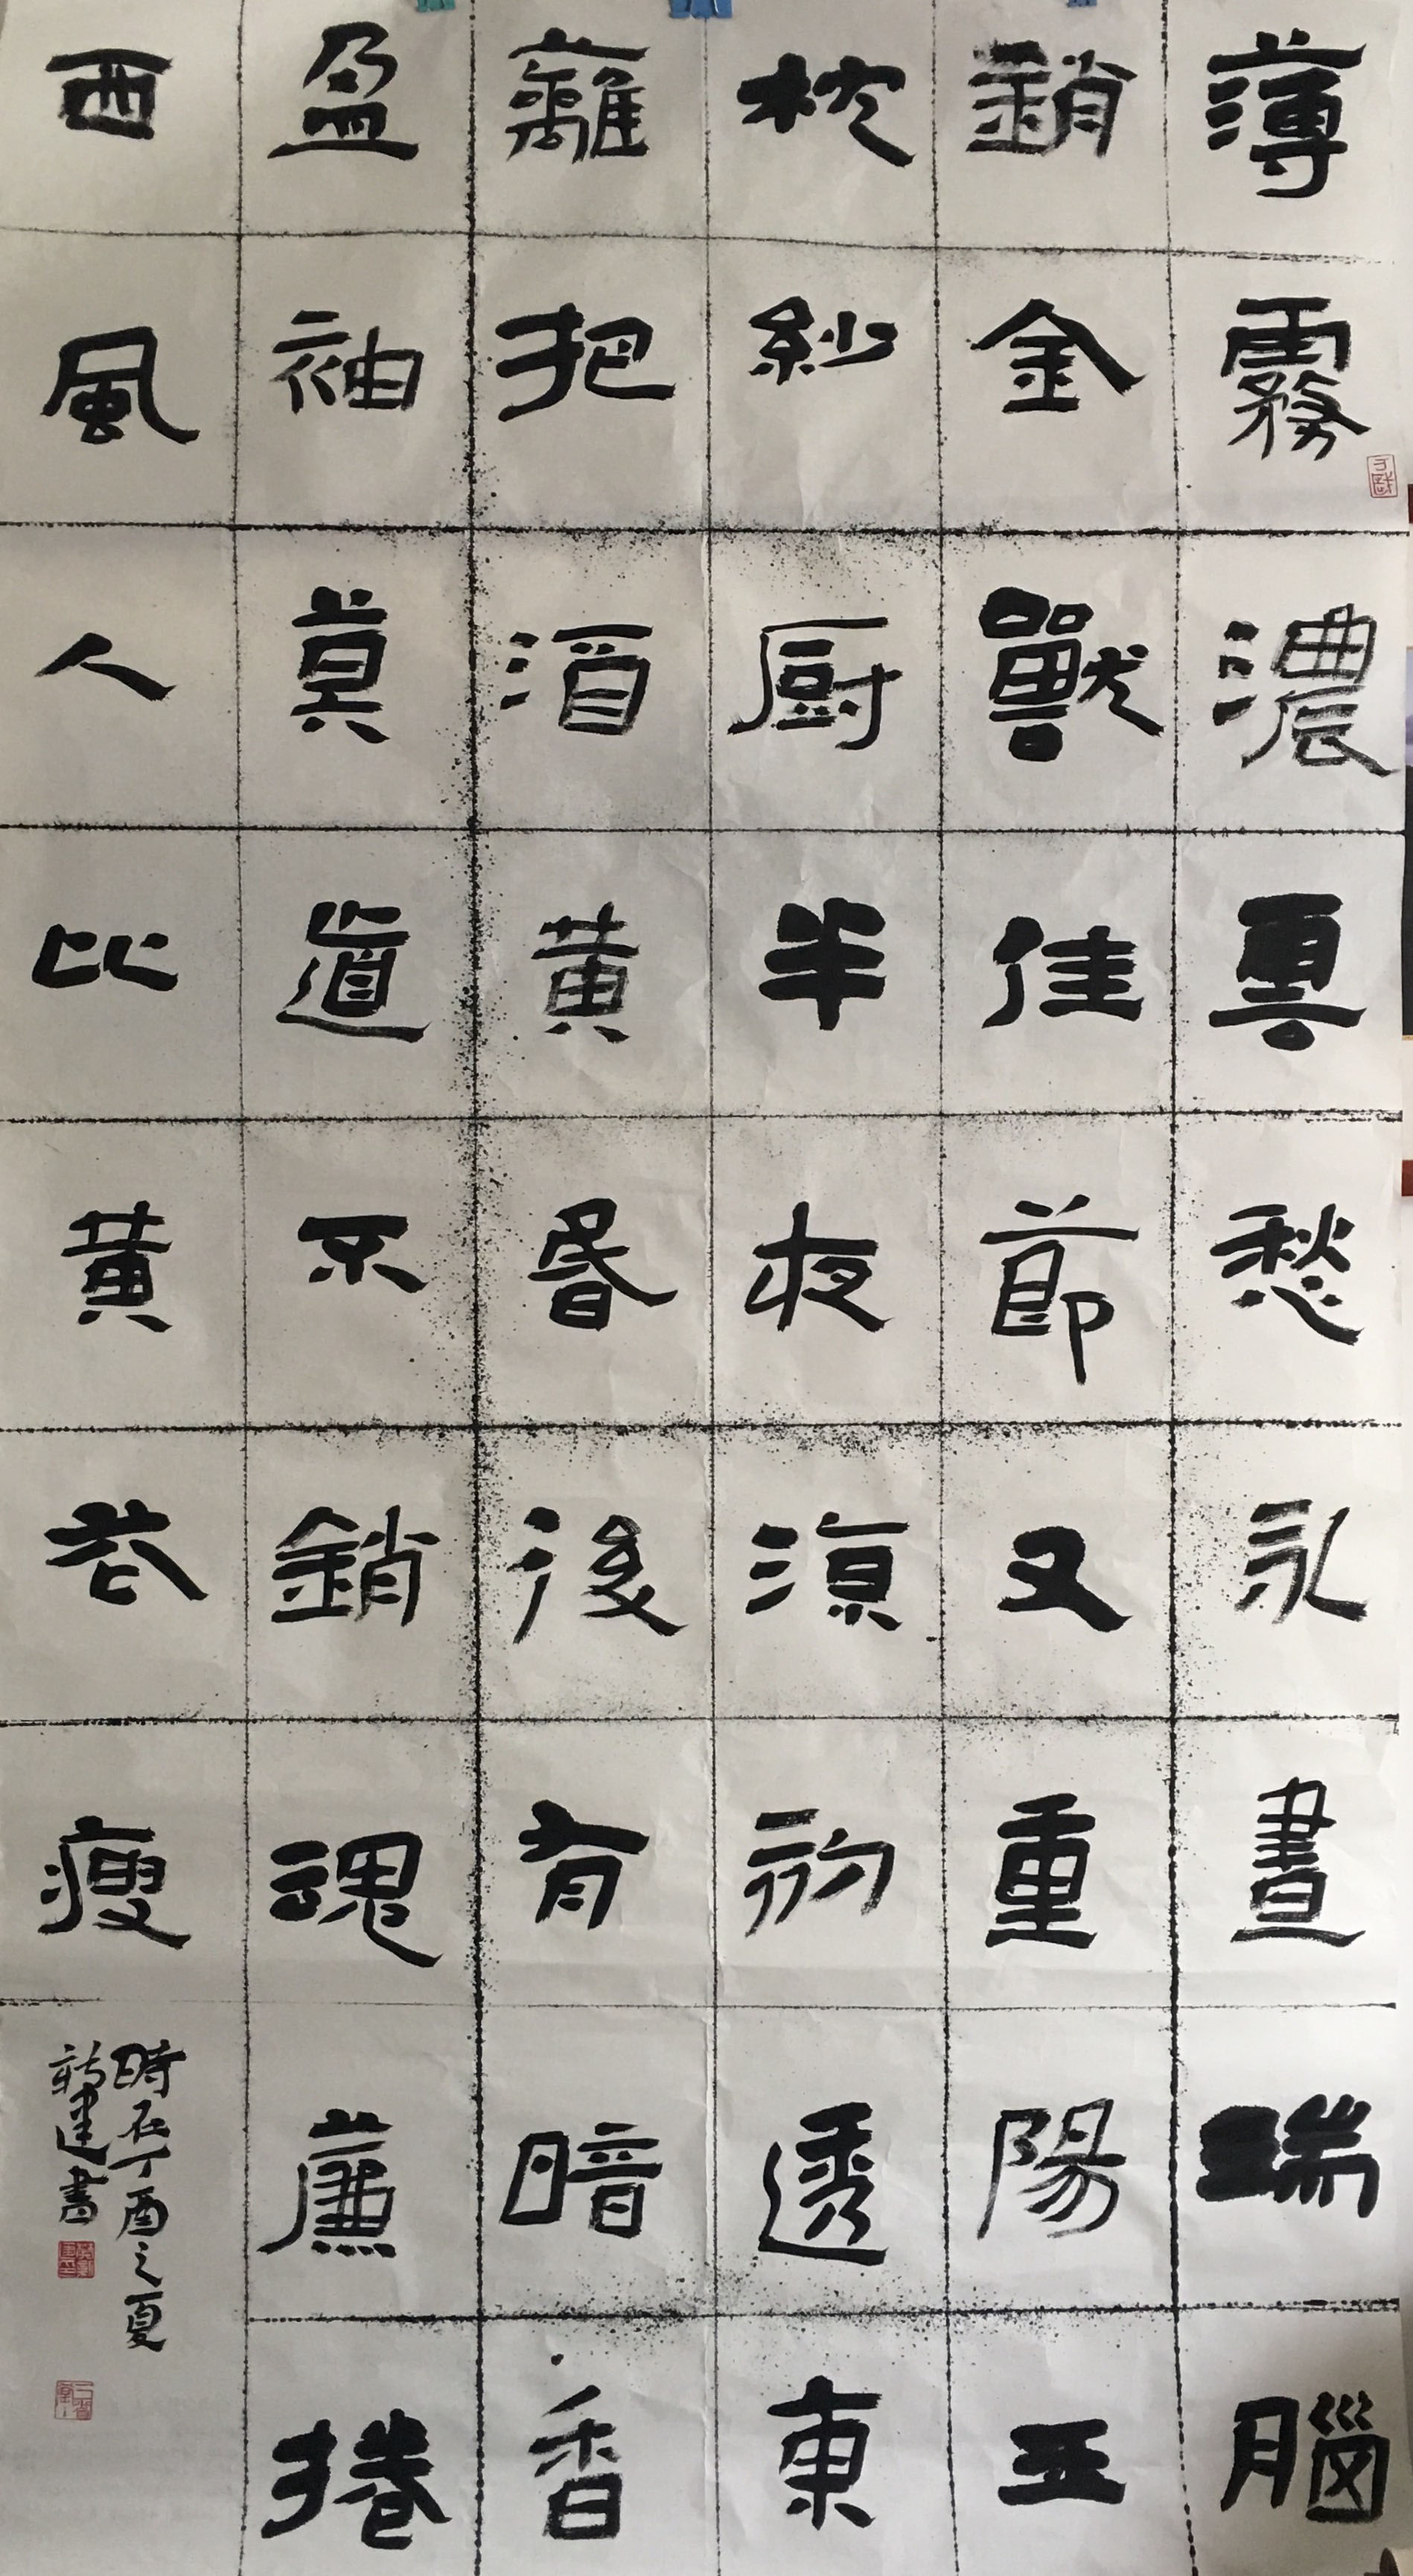 薄霧濃雲愁永晝瑞腦
銷金獸佳節又重陽玉
枕紗厨半夜涼初透東
籬把酒黃昏後有暗香
盈袖莫道不銷魂簾捲
西風人比黃花瘦
時在丁酉之夏
新建書